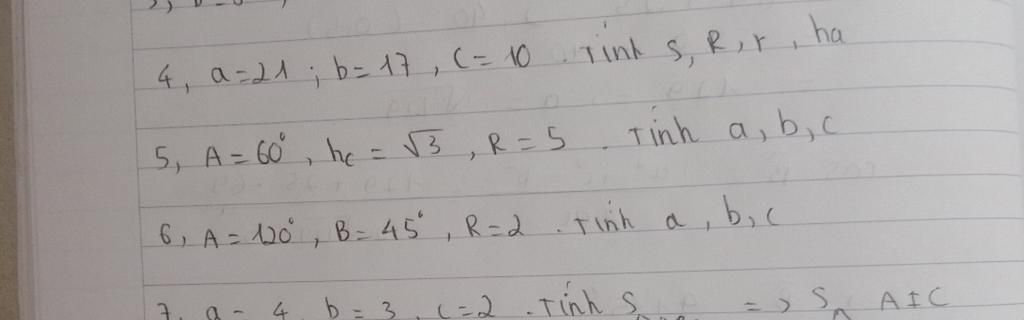 4, a=21 ; b=17, c=10. Tính S, R, r, ha
5, A=60°, hc = √3, R=5. Tính a, b, c
6, A=120°, B=45°, R=2. Tính a, b, c
7, a=4, b=3, c=2. Tính S => S AIC